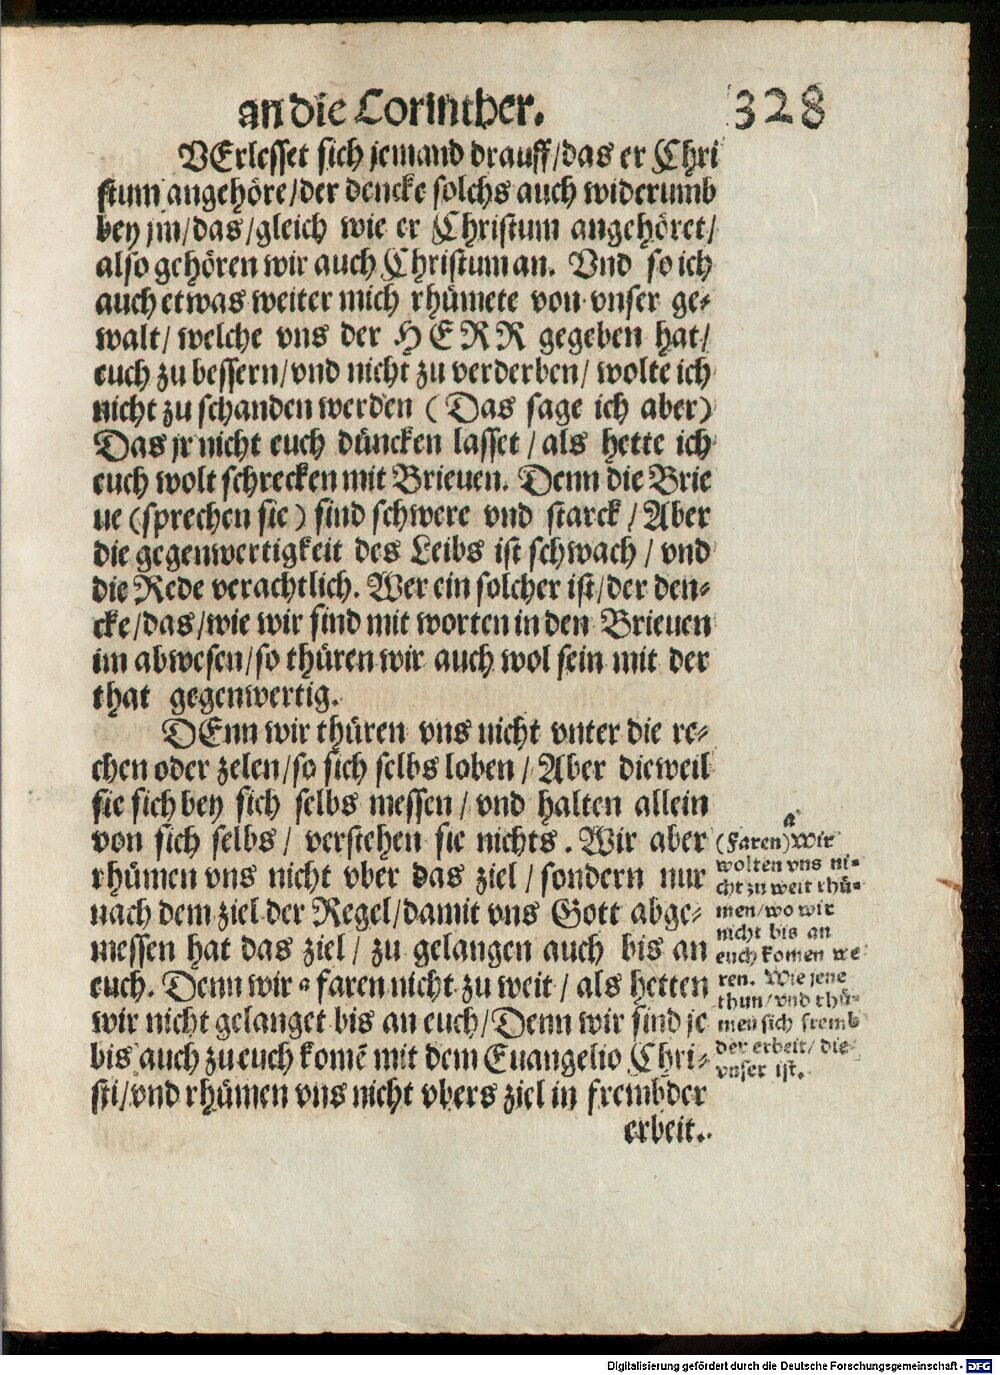 an die Corinther. 328
VErlesset sich jemand drauff/das er Chri
stum angehöre/der dencke solchs auch widerumb
bey jm/das/gleich wie er Christum angehöret/
also gehören wir auch Christum an. Vnd so ich
auch etwas weiter mich rhümete von vnser ge-
walt/ welche vns der HERR gegeben hat/
euch zu bessern/vnd nicht zu verderben/ wolte ich
nicht zu schanden werden (Das sage ich aber)
Das jr nicht euch düncken lasset/als hette ich
euch wolt schrecken mit Brieuen. Denn die Brie
ue (sprechen sie) sind schwere vnd starck/Aber
die gegenwertigkeit des Leibs ist schwach/vnd
die Rede verachtlich. Wer ein solcher ist/der den-
cke/das/wie wir sind mit worten in den Brieuen
im abwesen/so thüren wir auch wol sein mit der
that gegenwertig.
DEnn wir thüren vns nicht vnter die re-
chen oder zelen/so sich selbs loben/Aber dieweil
sie sich bey sich selbs messen/vnd halten allein
von sich selbs/ verstehen sie nichts. Wir aber
rhümen vns nicht vber das ziel/sondern nur
nach dem ziel der Regel/damit vns Gott abge-
messen hat das ziel/ zu gelangen auch bis an
euch. Denn wir a faren nicht zu weit/als hetten
wir nicht gelanget bis an euch/Denn wir sind je
bis auch zu euch komē mit dem Euangelio Chri-
sti/vnd rhümen vns nicht vbers ziel in frembder
erbeit.
a
(Faren) Wir
wolten vns ni-
cht zu weit rhü-
men/wo wir
nicht bis an
euch komen we
ren. Wie jene
thun/vnd rhü-
men sich fremb
der erbeit/ die
vnser ist.
Digitalisierung gefördert durch die Deutsche Forschungsgemeinschaft - DFG